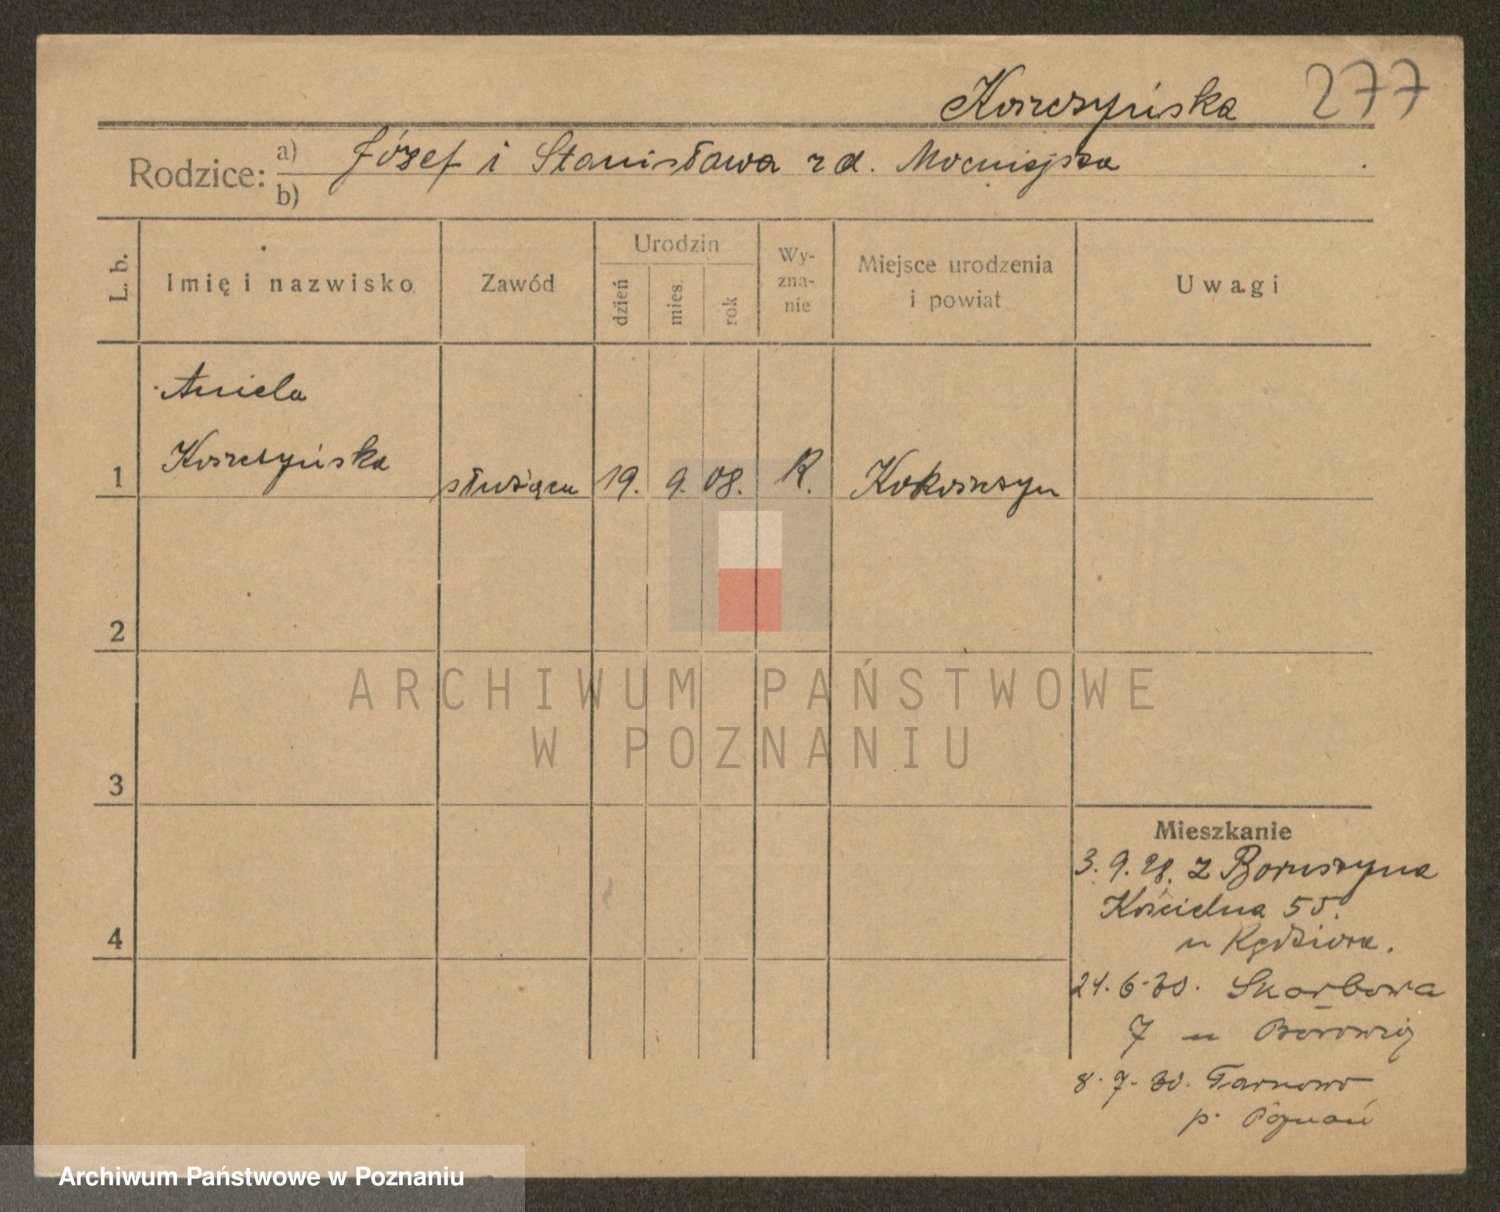 Korczyńska 277
Rodzice: a) Józef i Stanisława z d.
b)
L. b. Imię i nazwisko Zawód Urodzin dzień mies. rok Wy-zna-nie Miejsce urodzenia i powiat Uwagi
Aniela
1 Korczyńska służąca 19. 9. 08. R. Kokoszczyn
2
3
4
Mieszkanie
3. 9. 28. z Boruszyna
Kościelna 55.
u Kędziora.
21. 6. 30. Skarbowa
7 u
8. 7. 30. Tarnowo
p. Poznań
ARCHIWUM PAŃSTWOWE
W POZNANIU
Archiwum Państwowe w Poznaniu